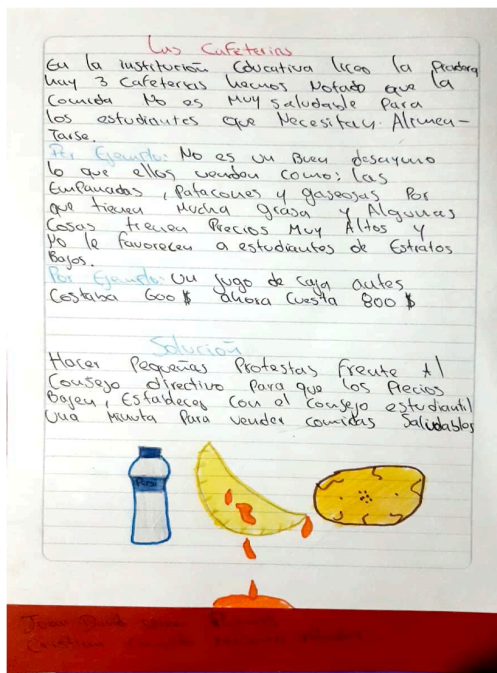 Las Cafeterias
En la institución Educativa liceo la Pradera
hay 3 Cafeterias hemos Notado que la
Comida No es Muy Saludable Para
los estudiantes que Necesitan Alimen-
Tarse.
Por Ejemplo: No es un Buen desayuno
lo que ellos venden como: las
Empanadas, Patacones y gaseosas Por
que tienen Mucha grasa y Algunas
Cosas tienen Precios Muy Altos y
No le favorecen a estudiantes de Estratos
Bajos.
Por Ejemplo: Un jugo de caja antes
Costaba 600 $ ahora Cuesta 800 $
Solución
Hacer Pequeñas Protestas Frente Al
Consejo directivo Para que los Precios
Bajen, Establecer Con el Consejo estudiantil
Una Minuta Para vender comidas Saludables
Juan David
Cristian